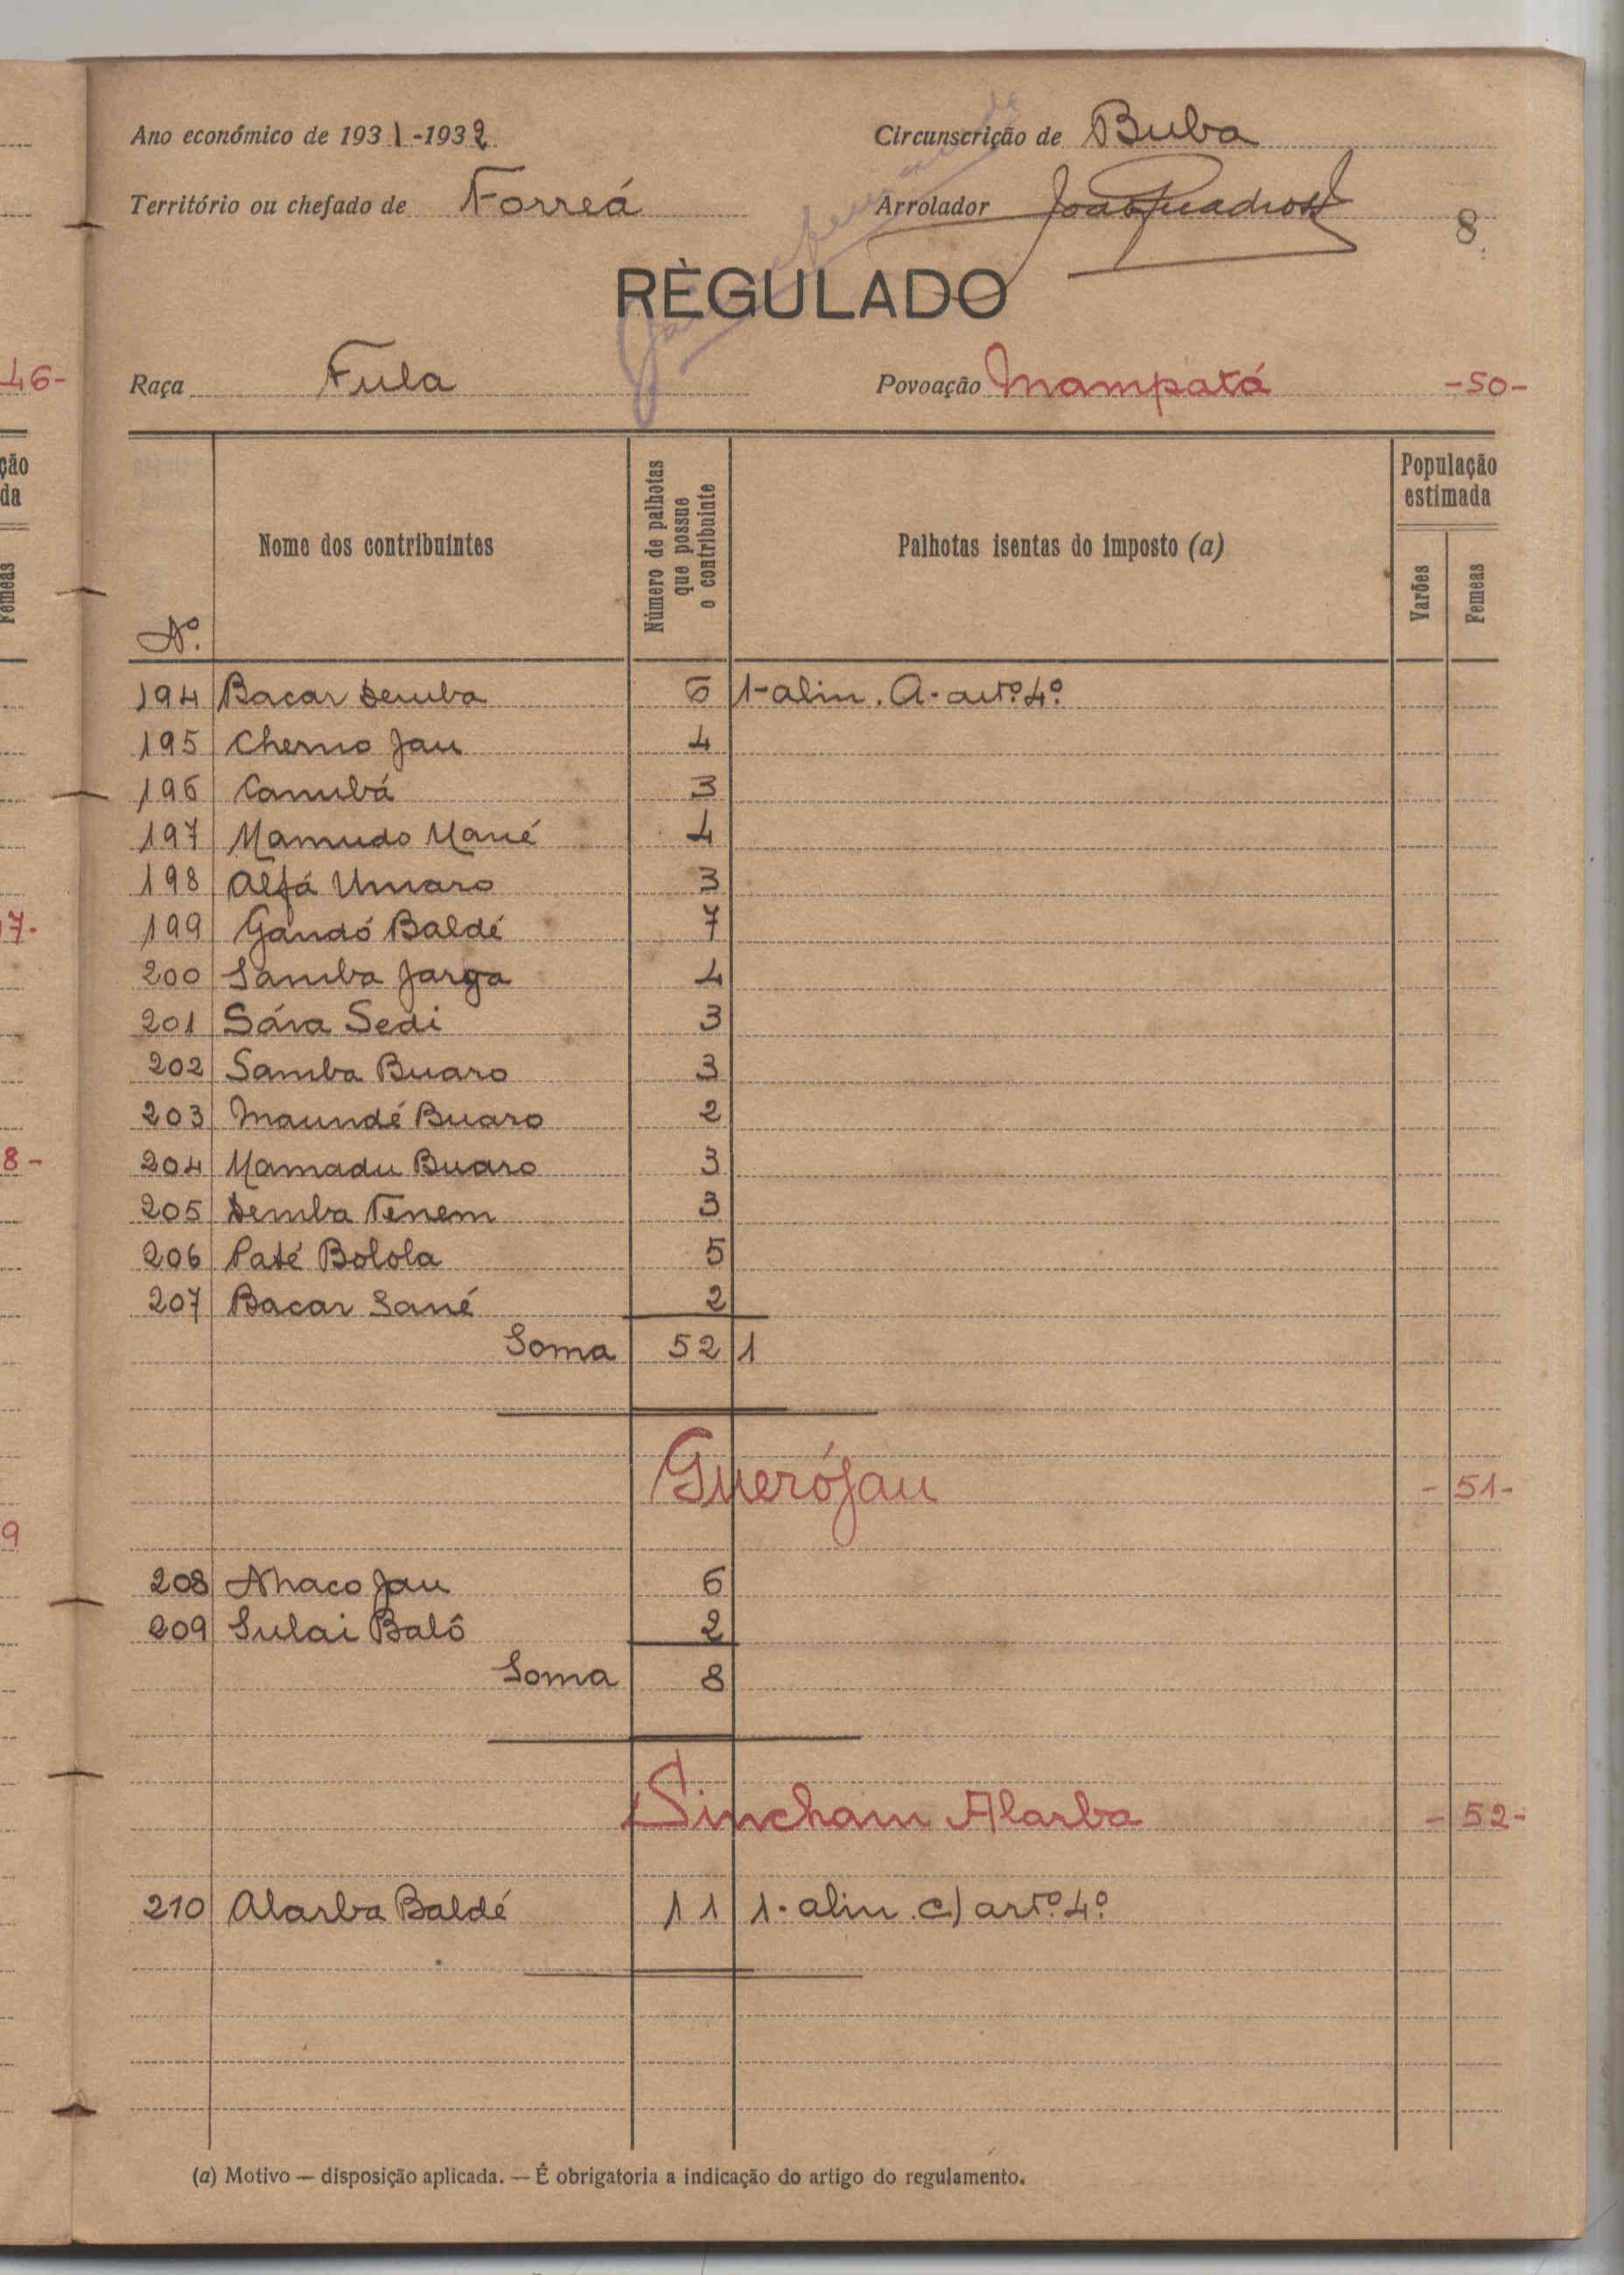 Ano económico de 1931-1932
Circunscrição de Buba
Território ou chefado de Forreá
Arrolador João Quadros
8
RÈGULADO
46-
Raça Fula
Povoação Mampatá -50-
ção
da
Femeas
Nº.
Nome dos contribuintes
Número de palhotas
que possue
o contribuinte
Palhotas isentas do imposto (a)
População
estimada
Varões
Femeas
194 Bacar Demba 6 1-alin. A-artº.4º
195 Cherno Jau 4
196 Canubá 3
197 Mamudo Mané 4
198 Alfá Umaro 3
7-
199 Gandó Baldé 7
200 Samba Jarga 4
201 Sára Sedi 3
202 Samba Buaro 3
203 Maundé Buaro 2
8-
204 Mamadu Buaro 3
205 Demba Tenem 3
206 Paté Bolola 5
207 Bacar Sané 2
Soma 52 1
Guerójau -51-
9
208 Nhaco Jau 6
209 Sulai Balô 2
Soma 8
Sincham Alarba -52-
210 Alarba Baldé 11 1-alin. c) artº.4º
(a) Motivo — disposição aplicada. — É obrigatoria a indicação do artigo do regulamento.